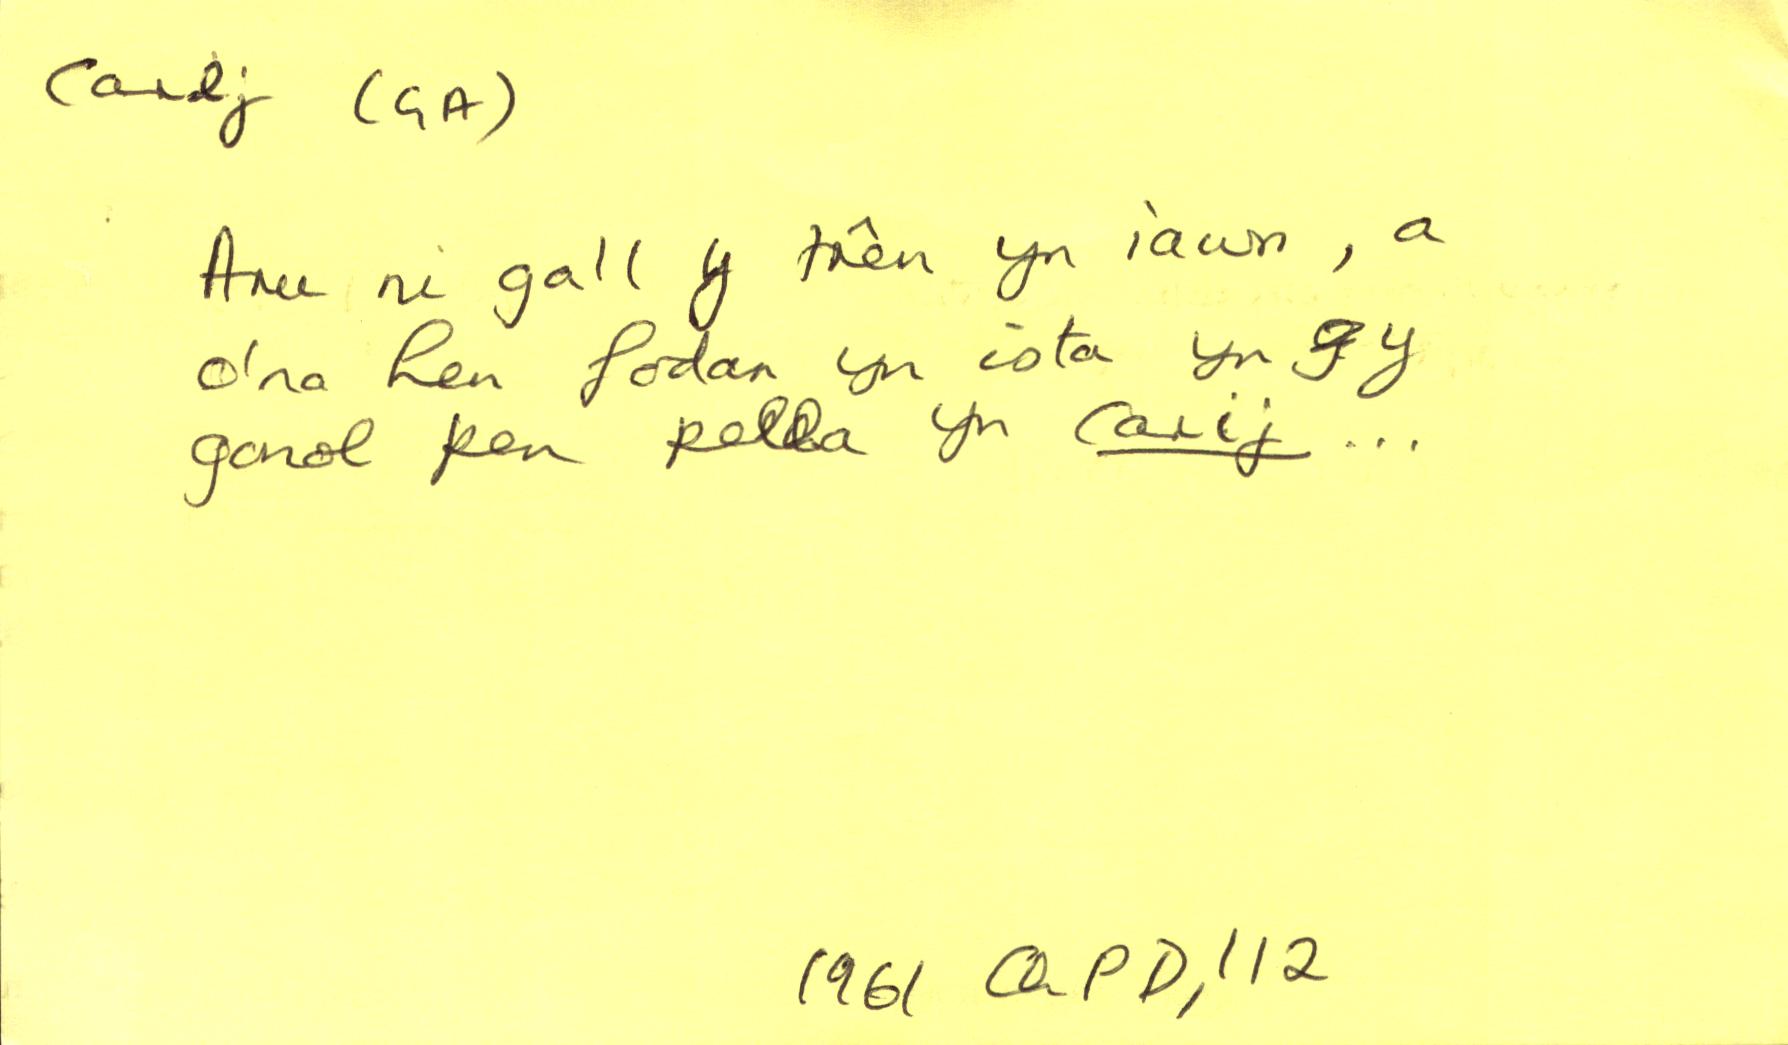 Carij (GA)
Aru ni ga'll y trên yn iawn, a
o'na hen fodan yn ista yn y
ganol pen pella yn carij ...
1961 PD, 112